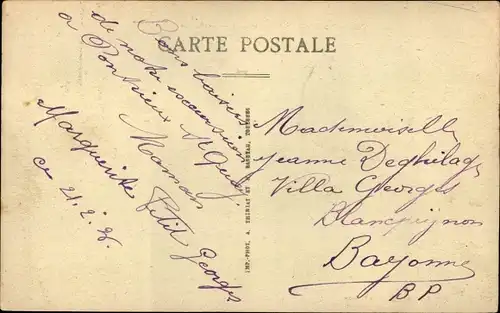 CARTE POSTALE
Bons baisers
de notre excursion
à Pontrieux
Maman
Petit Georges
Marguerite
ce 21.2.26.
IMP.-PHOT. A. THIRIAT ET
TOULOUSE
Mademoiselle
Jeanne
Villa Georges
Blancpignon
Bayonne
BP